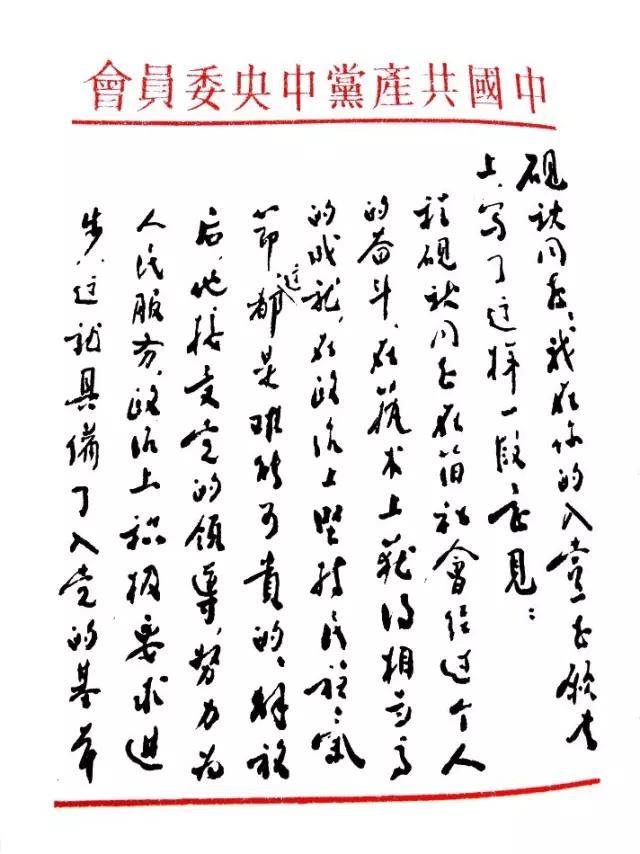 中國共產黨中央委員會
硯秋同志:我在你的入党志愿书
上,写了这样一段意見:
程硯秋同志在旧社會经过个人
的奋斗,在艺术上获得相当高
的成就,在政治上堅持民族氣
節,这都是难能可貴的。解放
后,他接受党的領導,努力为
人民服务,政治上积极要求进
步,这就具備了入党的基本